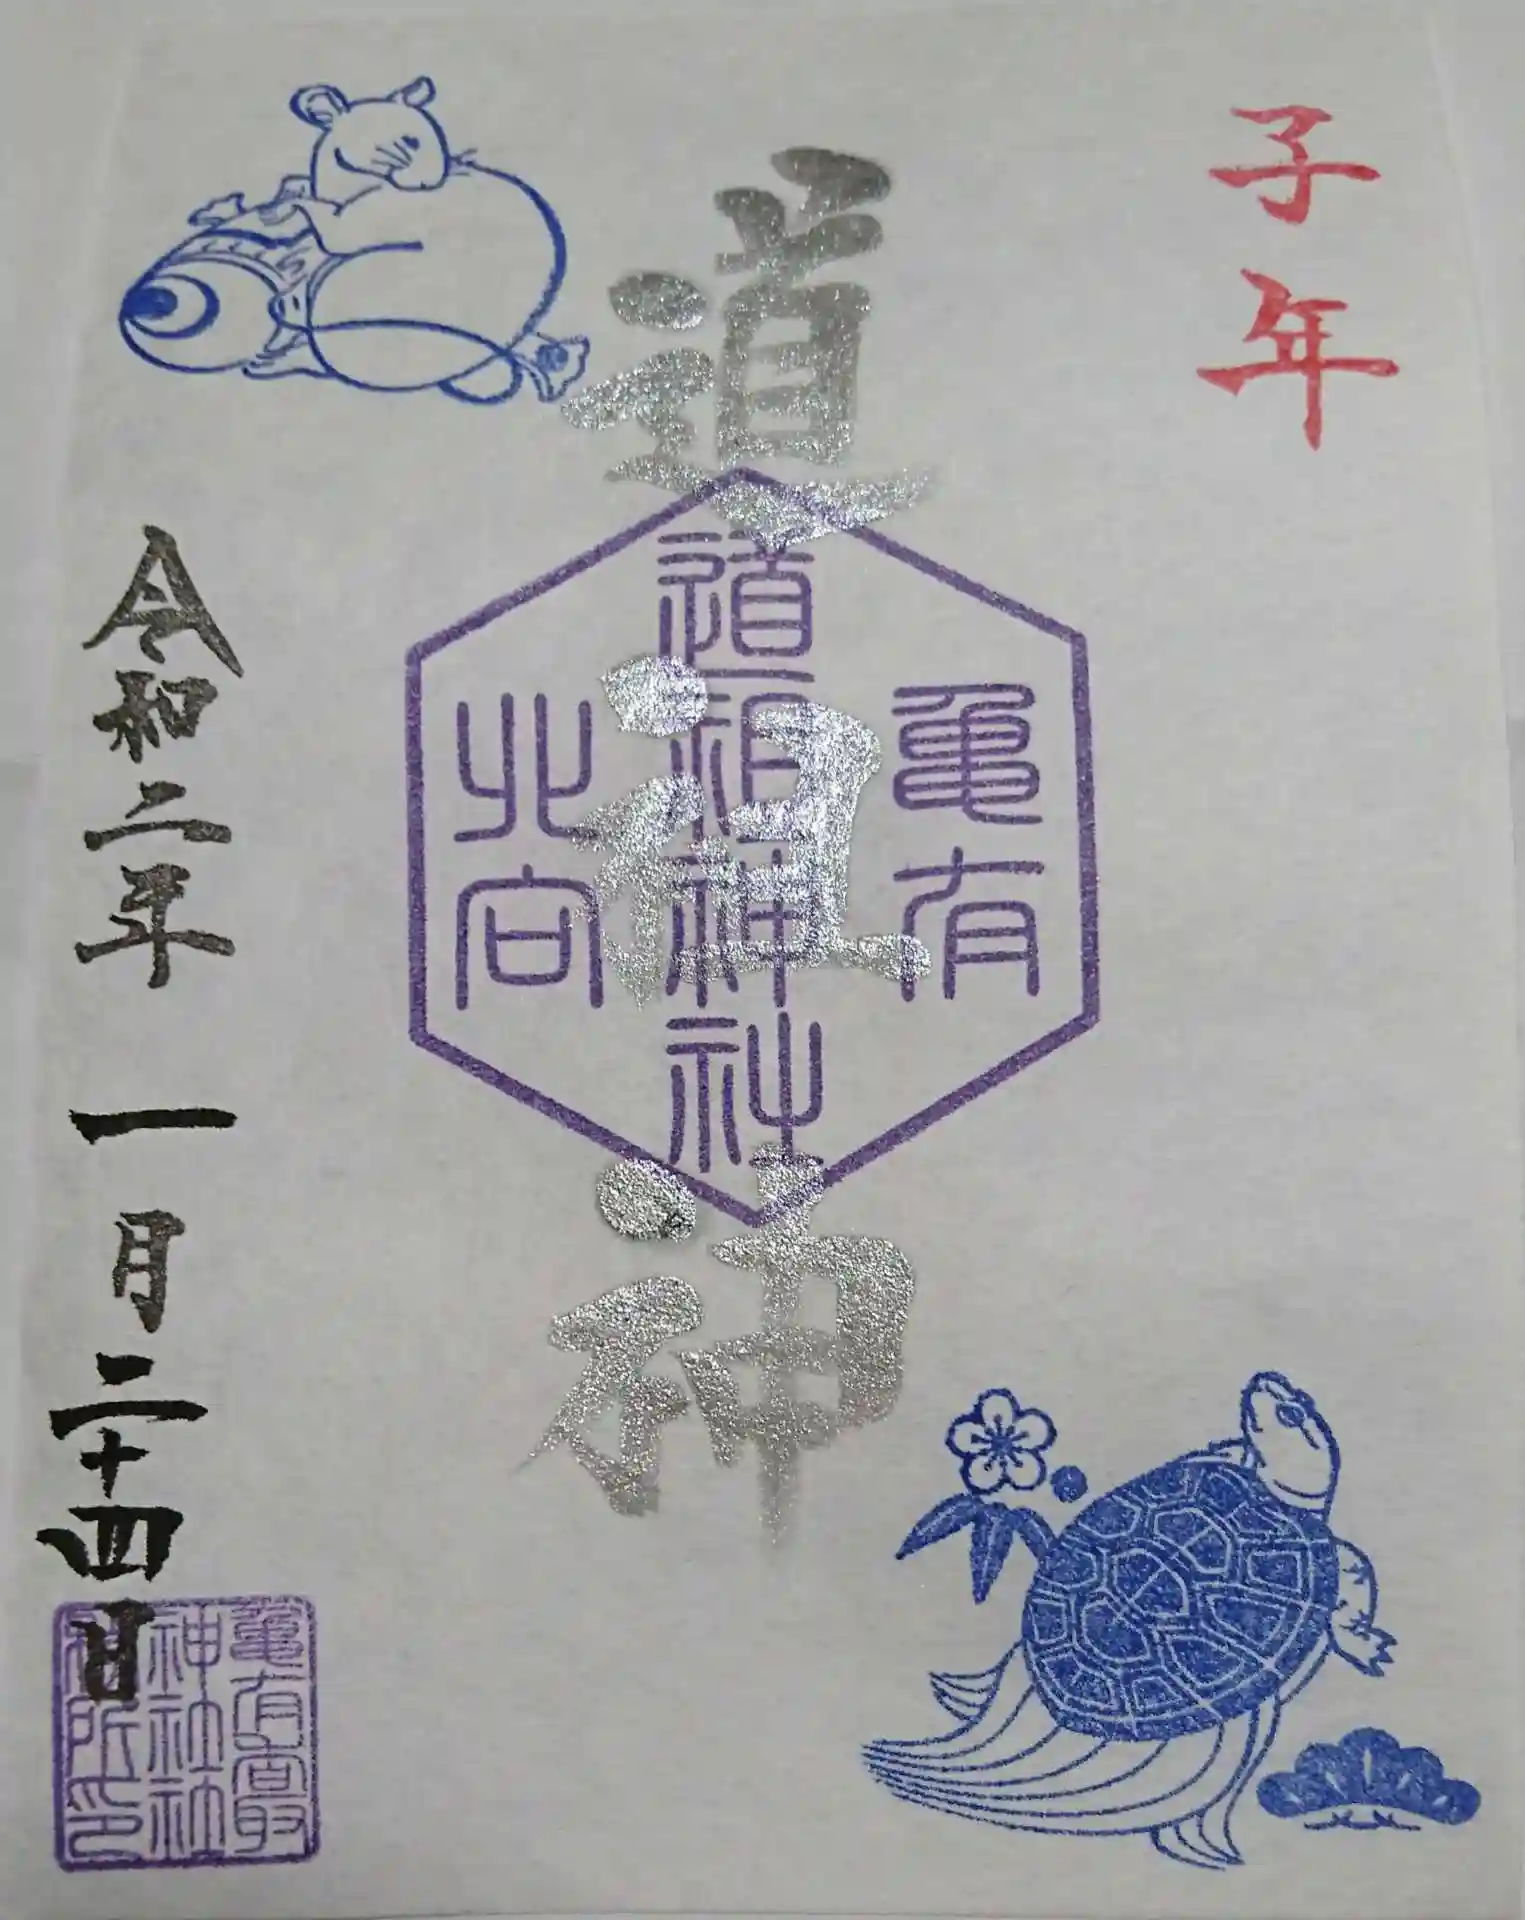 子年
道祖神
亀有
道祖神社
北向
令和二年 一月二十四日
亀有香取
神社社
務所印